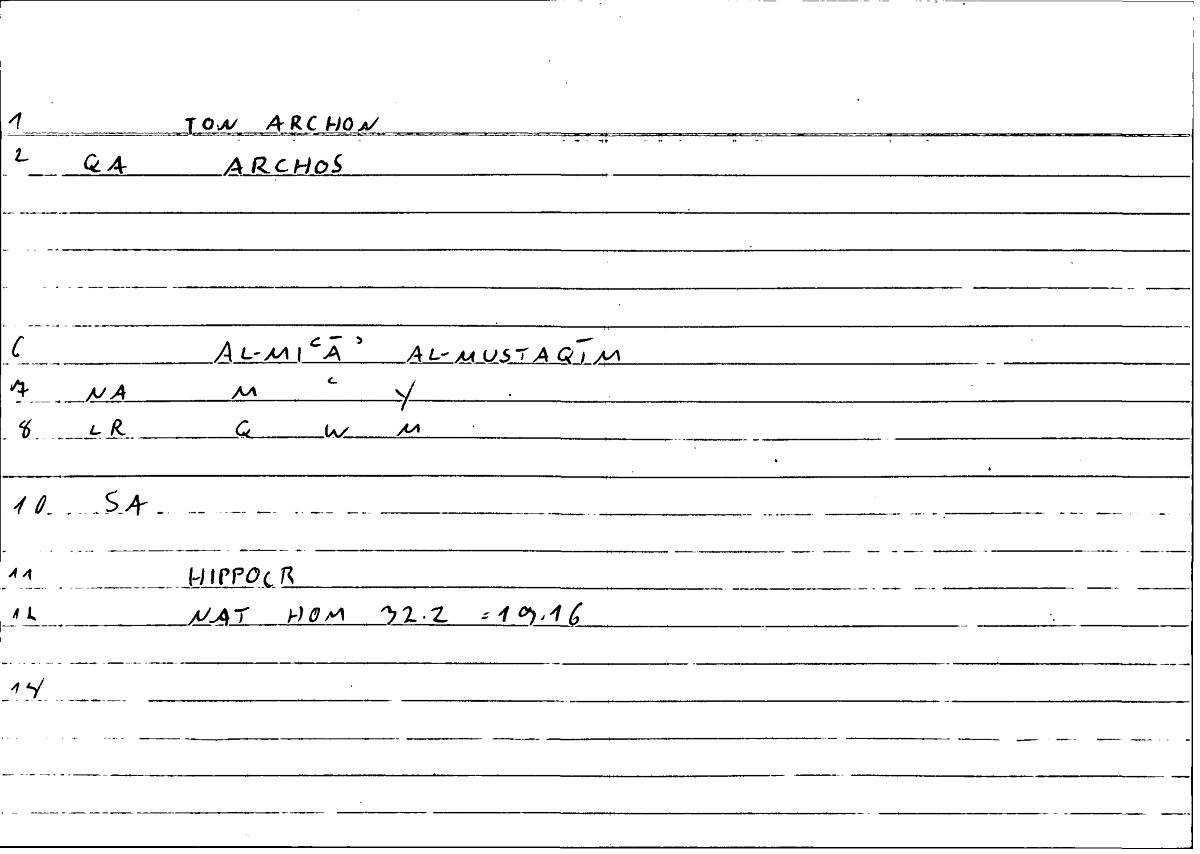 1 TON ARCHON
2 QA ARCHOS
6 AL-MIʿĀʾ AL-MUSTAQĪM
7 NA M ʿ Y
8 LR Q W M
10 SA
11 HIPPOCR
12 NAT HOM 32.2 =19.16
14